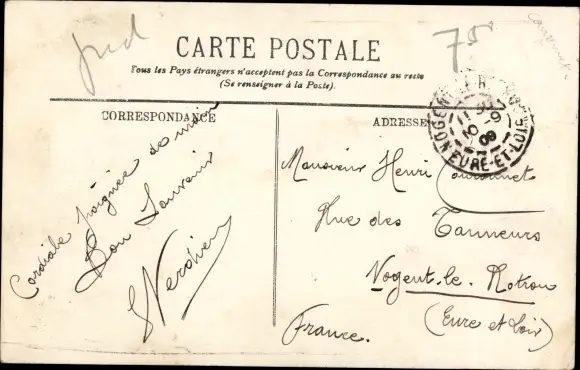 jud
75
CARTE POSTALE
Tous les Pays étrangers n'acceptent pas la Correspondance au recto
(Se renseigner à la Poste).
CORRESPONDANCE
Cordiale poignée de main
Bon Souvenir
ADRESSE
EURE-ET-LOIR
10 -9
09
Monsieur Henri Couronnet
Rue des Tanneurs
Nogent-le-Rotrou
(Eure et Loir)
France.